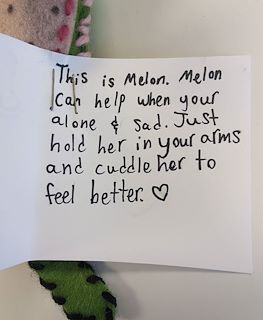 This is Melon. Melon
Can help when your
alone & sad. Just
hold her in your arms
and cuddle her to
feel better. ♡